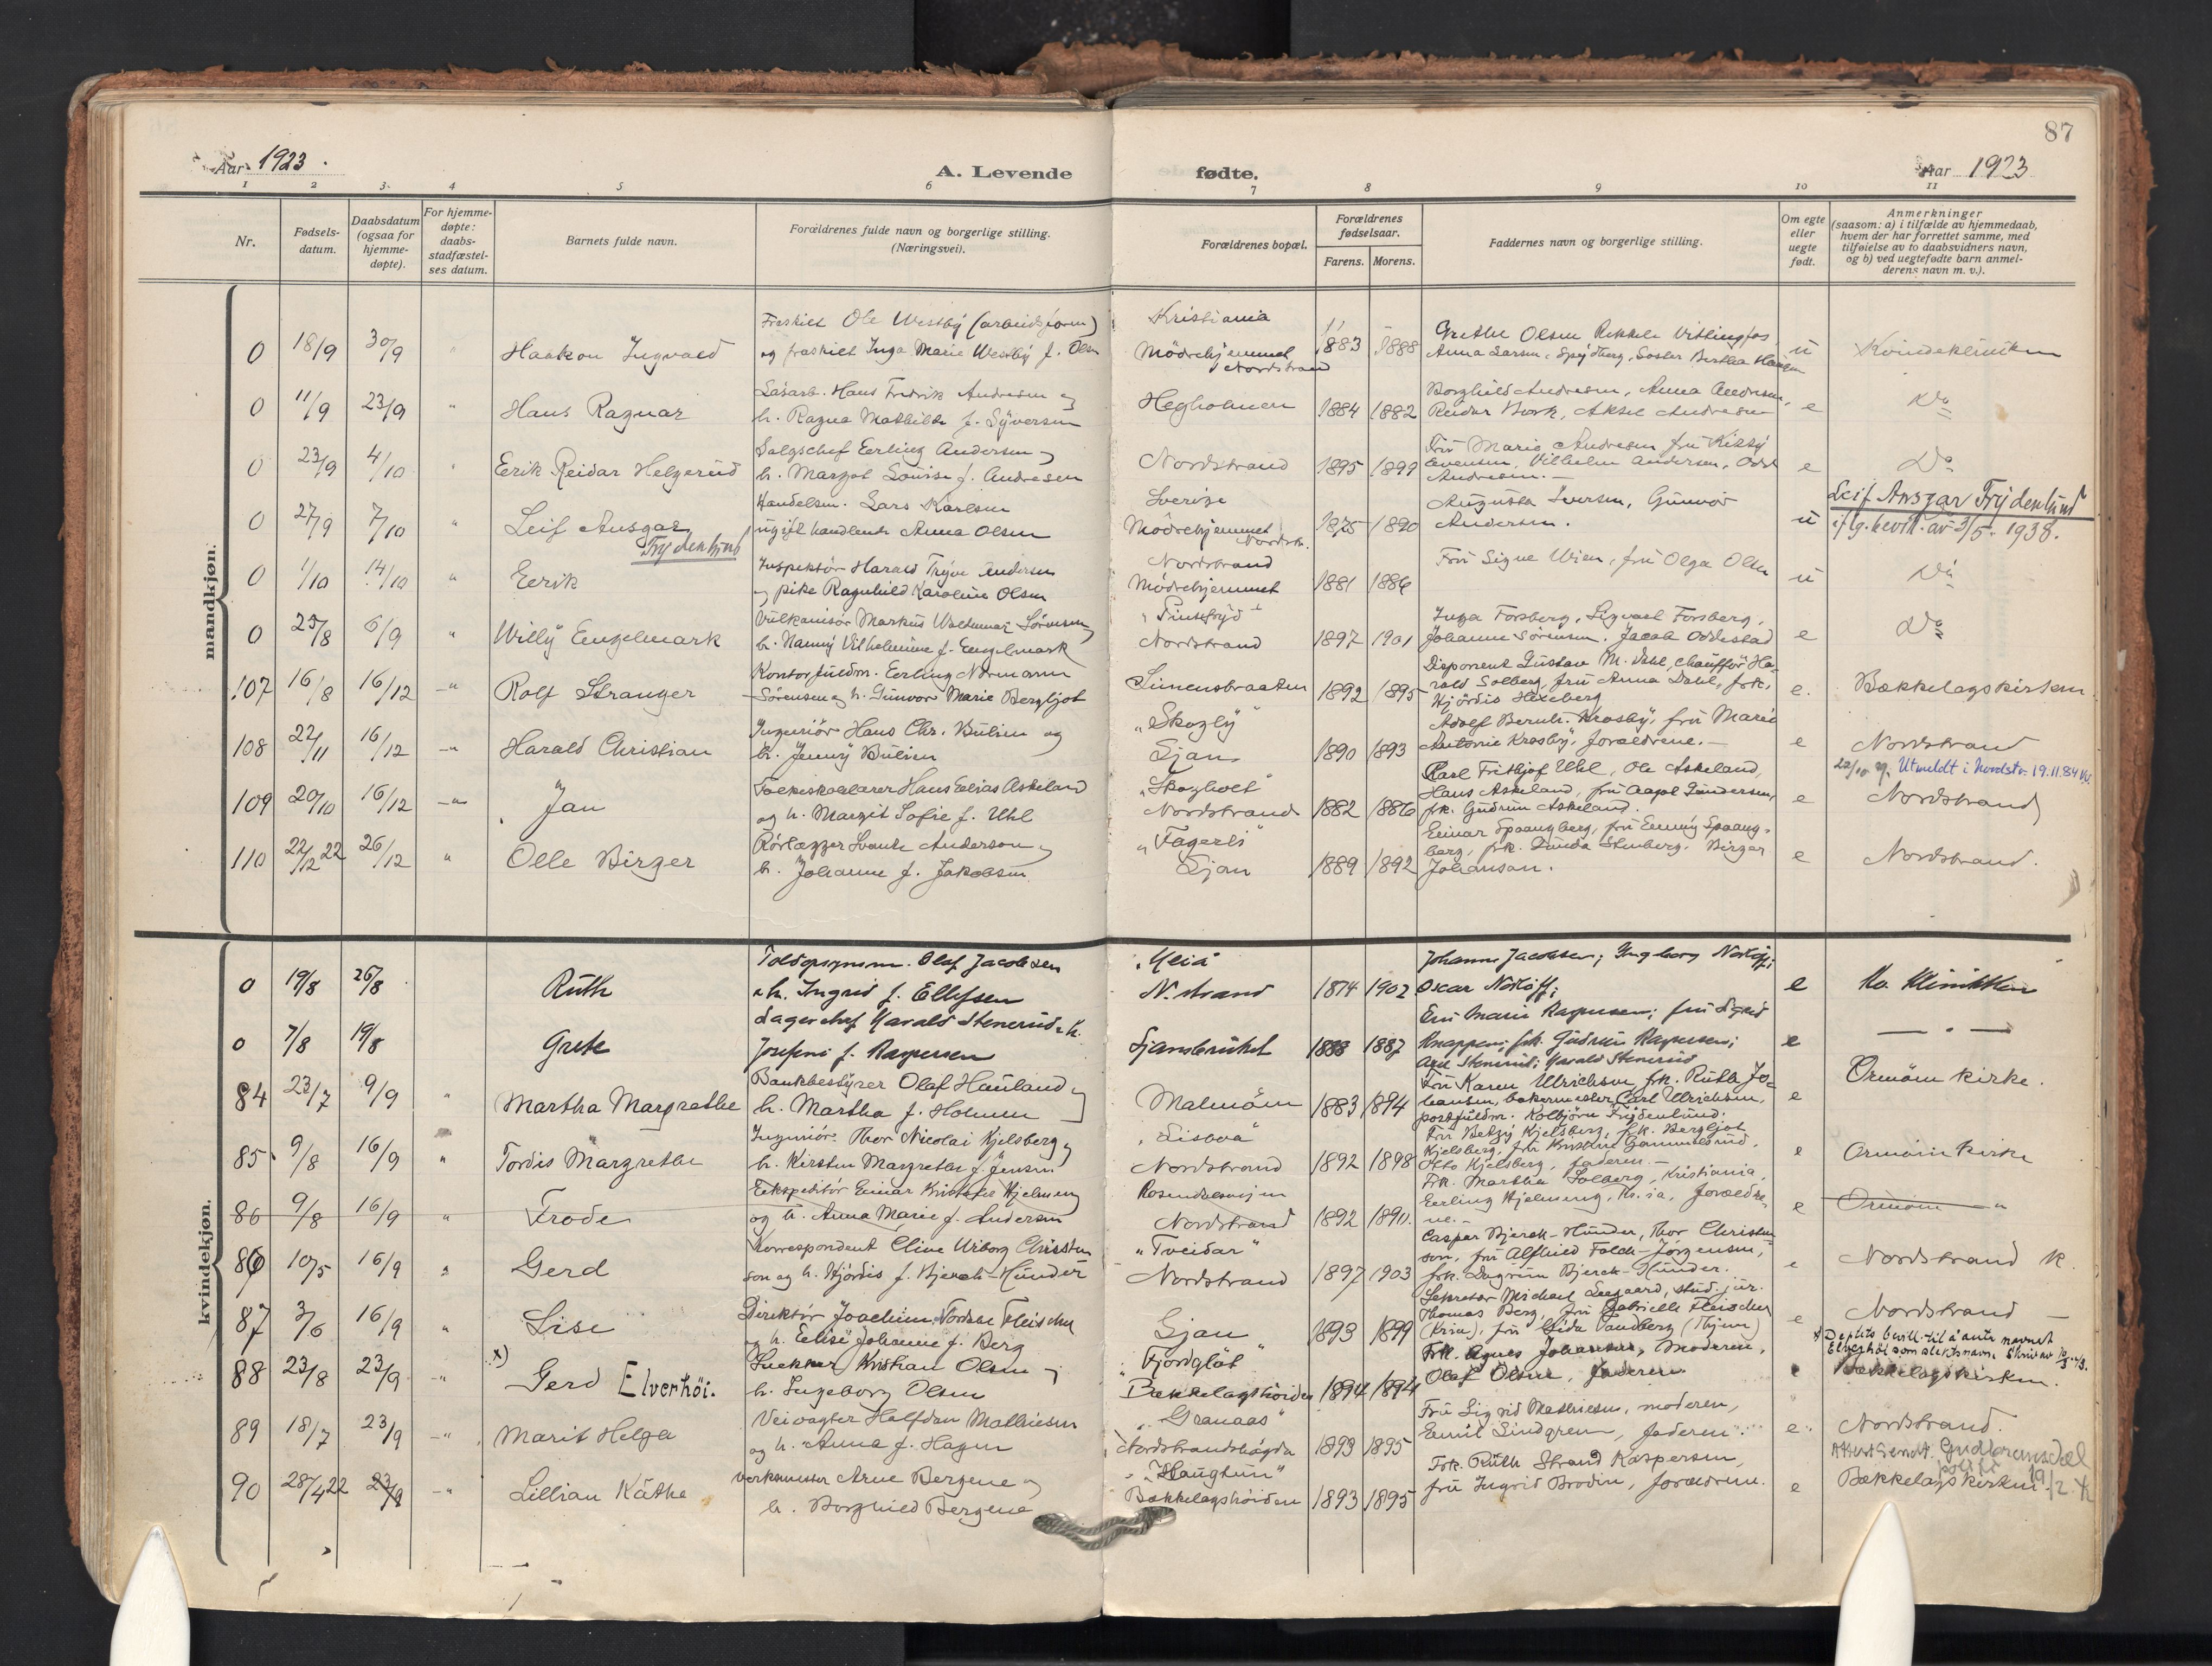 87
Aar 1923.
A. Levende
fødte.
Aar 1923
1 2 3 4 5 6 7 8 9 10 11
Nr.
Fødsels-
datum.
Daabsdatum
(ogsaa for
hjemme-
døpte).
For hjemme-
døpte:
daabs-
stadfæstel-
ses datum.
Barnets fulde navn.
Forældrenes fulde navn og borgerlige stilling.
(Næringsvei).
Forældrenes bopæl.
Forældrenes
fødselsaar.
Farens. Morens.
Faddernes navn og borgerlige stilling.
Om egte
eller
uegte
født.
Anmerkninger
(saasom: a) i tilfælde av hjemmedaab,
hvem der har forrettet samme, med
tilføielse av to daabsvidners navn,
og b) ved uegtefødte barn anmel-
derens navn m. v.).
mandkjøn.
Fraskilt Ole Westby (arbeidsform)
Kristiania
0 18/9 30/9 " Haakon Ingvald
og fraskilt Inga Marie Westby f. Olsen
Mödrehjemmet
Nordstrand
1883 1888
Grethe Olsen
Anna Larsen
u
Kvindeklinikken
0 11/9 23/9 " Hans Ragnar
Hans Fredrik Andresen og
h. Ragna Mathilde f. Syversen
Hegholmen
1884 1882
Borghild Andresen, Anna Andresen,
Reidar Bork, Aksel Andresen
e
Do
0 23/9 4/10 " Eerik Reidar Helgerud
Salgschef Eerling Andersen og
h. Margot Louise f. Andresen
Nordstrand
1895 1899
Fru Marie Andresen, fru Kissy
Evensen, Vilhelm Andersen, Odd
Andresen. —
e
Do
0 27/9 7/10 " Leif Ansgar
Frydenlund
Handelsm. Lars Karlsen
ugift handlende Anna Olsen
Sverige
Mödrehjemmet
Nordstr.
1875 1890
Augusta Iversen, Gunvor
Andersen.
u
Leif Ansgar Frydenlund
iflg. bevill. av 3/5 - 1938.
0 1/10 14/10 " Eerik
Inspektör Harald Trygve Andersen
og pike Ragnhild Karoline Olsen
Nordstrand
Mödrehjemmet
1881 1886
Fru Signe Wien, fru Olga Olsen
u
Do
0 25/8 6/9 " Willy Engelmark
Vulkanisör Markus Waldemar Sörensen og
h. Nanny Vilhelmine f. Engelmark
Nordstrand
1897 1901
Inga Forsberg, Sigvart Forsberg,
Johanne Sörensen. Jacob Oddestad
e
Do
107 16/8 16/12 -"- Rolf Stranger
Kontorfuldm. Eerling Normann
Sörensen og h. Gunvor Marie Bergljot
Simensbraaten
1892 1895
Disponent Gustav M. Dahl, chaufför Ha-
rald Solberg, fru Anna Dahl, frk.
Hjördis Hexeberg
e.
Bækkelagskirken
108 22/11 16/12 -"- Harald Christian
Ingeniör Hans Chr. Bülien og
h. Jenny Bülien
"Skogly"
Ljan
1890 1893
Adolf Bernh. Krosby, fru Marie
Antonie Krosby, forældrene. —
e
Nordstrand
Utmeldt i Nordstr. 19.11.84
109 20/10 16/12 -"- Jan
Folkeskolelærer Hans Eelias Askeland
og h. Margit Sofie f. Uhl
"Skogholt"
Nordstrand
1882 1886
Karl Fritjof Uhl, Ole Askeland,
Hans Askeland, fru Aagot Gundersen,
frk. Gudrun Askeland.
e
Nordstrand
110 22/12 22 26/12 " Olle Birger
Rörlægger Svante Anderson og
h. Johanne f. Jakobsen
"Fagerli"
Ljan
1889 1892
Eeinar Spaangberg, fru Emmy Spaang-
berg, frk. Linda Stenberg. Birger
Johanson.
e
Nordstrand.
kvindekjøn.
0 19/8 26/8 Ruth
Toldopsynsm. Olaf Jacobsen
& h. Ingrid f. Ellefsen
N.strand
1874 1902
Johanne Jacobsen; Ingeborg
Oscar
e
Kv. Klinikken
0 7/8 19/8 Grete
Lagerchef Harald Stenerud & h.
Josefine f. Raspersen
Ljansbruket
1888 1887
e
— " —
Harald Stenerud
84 23/7 9/9 " Martha Margrethe
Bankbestyrer Olaf Hauland og
h. Martha f. Holmen
Malmöen
1883 1894
Fru Karen Ulrichsen, frk. Ruth Jo-
hansen, bakermester Carl Ulrichsen,
postfuldm. Kolbjörn Frydenlund.
e
Ormöen kirke.
85 9/8 16/9 " Tordis Margrethe
Ingeniör Thor Nicolai Kjelsberg og
h. Kirsten Margrethe f. Jensen
Nordstrand
1892 1898
Fru Betzy Kjelsberg, frk. Bergljot
Kjelsberg, fru Kirstine Gammelsrud,
Otto Kjelsberg, faderen. —
e
Ormöen kirke
86 9/8 16/9 " Frode
Eekspeditör Einar Kristofer Hjelmeng
og h. Anna Marie f. Andersen
Rosendalsveien
Nordstrand
1892 1890.
Frk. Martha Solberg, Kristiania,
Eerling Hjelmeng, Kr.ia, forældre-
ne. —
e
Ormöen "
86 10/5 16/9 " Gerd
Korrespondent Clive Wiborg Christen-
sen og h. Hjördis f. Bjerck-Hunder
"Tveidar"
Nordstrand
1897 1903
Casper Bjerck-Hunder, Thor Christen-
sen, fru Alfhild Falck-Jörgensen,
frk. Dagrun Bjerck-Hunder.
e
Nordstrand K.
87 3/6 16/9 " Lise
Direktör Joachim Fleischer
og h. Eelise Johanne f. Berg
Ljan
1893 1899
Sekretær Michael Leegaard, stud. jur.
Thomas Berg, fru Gabrielle Fleischer
e
Nordstrand —
x) Depts bevill. til å anta navnet
Elverhöi som slektsnavn.
88 23/8 23/9 -"- x) Gerd Elverhöi.
Snekker Kristian Olsen og
h. Ingeborg Olsen
"Fjordglöt"
Bækkelagshöiden
1894 1894
Frk. Agnes Johansen, Moderen,
Olaf Olsen, faderen
e
Bækkelagskirken.
89 18/7 23/9 -"- Marit Helga
Veivogter Halfdan Mathiesen
og h. Anna f. Hagen
"Granaas"
Nordstrandshögda
1893 1895
Fru Sigrid Mathiesen, moderen,
Eemil Lindgren, faderen.
e
Nordstrand.
90 28/4 22 23/9 -"- Lillian Käthe
Verksmester Arne Bergene og
h. Borghild Bergene
"Haugtun"
Bækkelagshöiden
1893 1895
Frk. Ruth Strand Kaspersen,
fru Ingrid Brodin, forældrene.
e
Gudbransdal
Bækkelagskirken